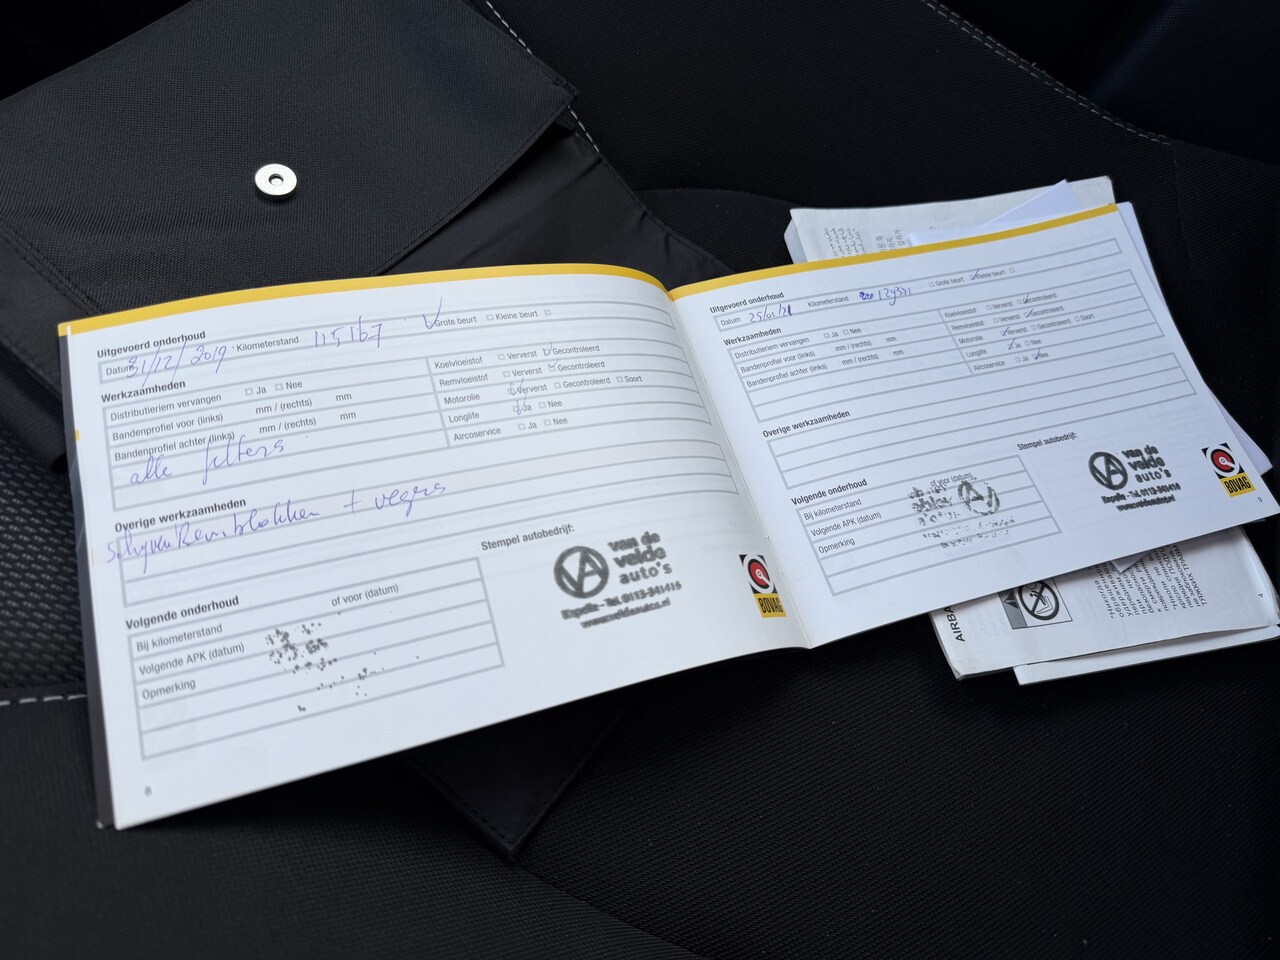 Uitgevoerd onderhoud
Datum 31/12/2019 Kilometerstand 115167 Grote beurt Kleine beurt
Werkzaamheden
Distributieriem vervangen Ja Nee
Bandenprofiel voor (links) mm / (rechts) mm
Bandenprofiel achter (links) mm / (rechts) mm
alle filters
Koelvloeistof Ververst Gecontroleerd
Remvloeistof Ververst Gecontroleerd
Motorolie Ververst Gecontroleerd Soort
Longlife Ja Nee
Aircoservice Ja Nee
Overige werkzaamheden
schijven Remblokken + vegers
Volgende onderhoud
Bij kilometerstand of voor (datum)
Volgende APK (datum)
Opmerking
Stempel autobedrijf:
VA
van de
velde
auto's
Kapelle - Tel. 0113-341416
www.veldeautos.nl
BOVAG
8
Uitgevoerd onderhoud
Datum 25/01/21 Kilometerstand 129331 Grote beurt Kleine beurt
Werkzaamheden
Distributieriem vervangen Ja Nee
Bandenprofiel voor (links) mm / (rechts) mm
Bandenprofiel achter (links) mm / (rechts) mm
Koelvloeistof Ververst Gecontroleerd
Remvloeistof Ververst Gecontroleerd
Motorolie Ververst Gecontroleerd Soort
Longlife Ja Nee
Aircoservice Ja Nee
Overige werkzaamheden
Volgende onderhoud
Bij kilometerstand of voor (datum)
Volgende APK (datum)
Opmerking
Stempel autobedrijf:
VA
van de
velde
auto's
Kapelle - Tel. 0113-341416
www.veldeautos.nl
BOVAG
9
AIRBA